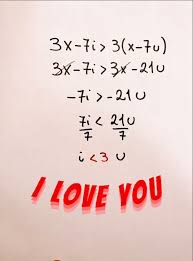 3x-7i>3(x-7u)
3x-7i>3x-21u
-7i>-21u
7i/7 < 21u/7
i<3 u
I LOVE YOU